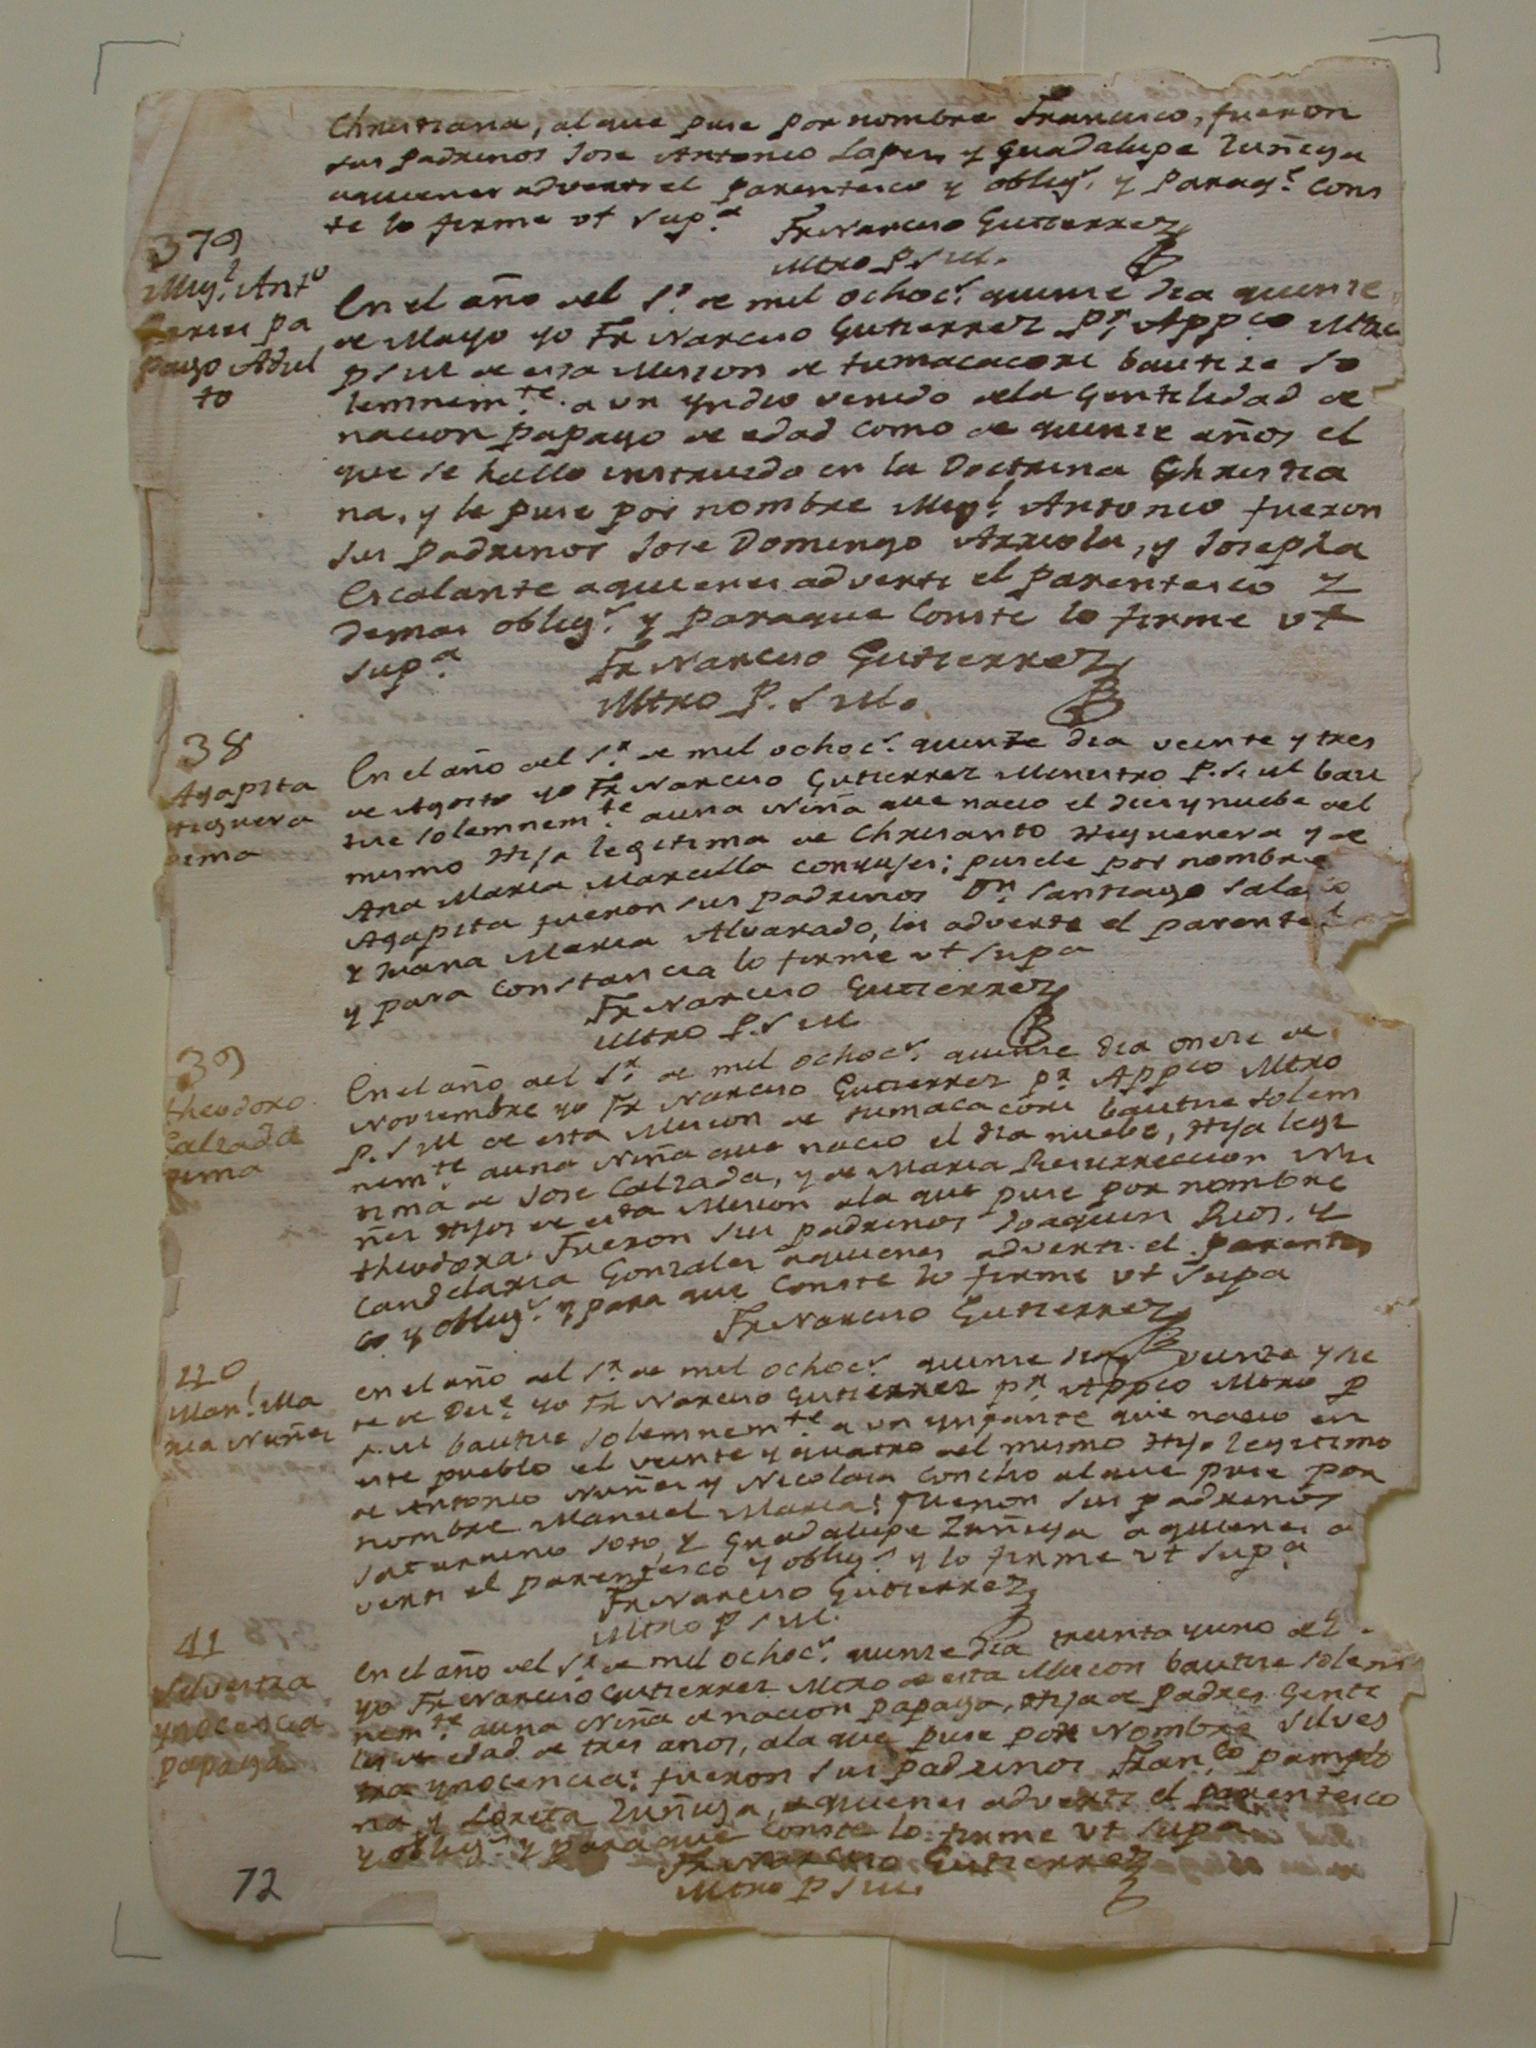 Christiana, al que puse por nombre Francisco, fueron
sus padrinos Jose Antonio Lopes y Guadalupe Zuñiga
aquienes adverti el parentesco y oblig.s y paraq.e cons
te lo firme vt sup.a
Fr Narciso Gutierrez
Mtro P. S M.
379
Mig.l Ant.o
pa
pago Adul
to
En el año del S.r de mil ochoc.s quinse dia quinse
de Mayo yo Fr Narciso Gutierrez P.r App.co Mtro
P S M de esta Mision de tumacacori bautize so
lemnem.te a un yndio venido dela Gentilidad de
nacion papago de edad como de quinse años el
que se hallo instruido en la Doctrina Christia
na, y le puse por nombre Mig.l Antonio fueron
sus padrinos Jose Domingo Arriola, y Josepha
Escalante aquienes adverti el parentesco y
demas oblig.s y paraque conste lo firme vt
sup.a
Fr Narciso Gutierrez
Mtro P. S M.
38
Agapita
Higuera
pima
En el año del S.r de mil ochoc.s quinze dia veinte y tres
de Agosto yo Fr Narciso Gutierrez Ministro P. S. M bau
tise solemnem.te auna Niña que nacio el dies y nuebe del
mismo Hija legitima de Chrisanto Higuerera y de
Ana Maria Marcilla conyuges; pusele por nombre
Agapita fueron sus padrinos D.n Santiago
y Juana Maria Alvarado, les adverti el parente
y para constancia lo firme vt supa
Fr Narciso Gutierrez
Mtro P. S M
39
theodora
Calzada
pima
En el año del S.r de mil ochoc.s quinse dia onse de
Noviembre yo Fr Narciso Gutierrez P.r App.co Mtro
P. S M de esta Mision de tumacacori bautise solem
nem.te auna Niña que nacio el dia nuebe, Hija legi
tima de Jose Calzada, y de Maria Resurreccion Nu
ñes Hijos de esta Mision ala que puse por nombre
theodora. Fueron sus padrinos Joaquin Rios. y
Candelaria Gonzales aquienes adverti el parentes
co y oblig.s y para que conste lo firme vt supa
Fr Narciso Gutierrez
40
Man.l Ma
ria Nuñes
en el año del S.r de mil ochoc.s quinse dia veinte y sie
te de Dic.e yo Fr Narciso Gutierrez P.r App.co Mtro P
S. M bautise solemnem.te a un ynfante que nacio en
este pueblo el veinte y quatro del mismo Hijo legitimo
de Antonio Nuñes y Nicolasa Concho al que puse por
nombre Manuel Maria; fueron sus padrinos
Saturnino Soto, y Guadalupe Zuñiga aquienes a
verti el parentesco y oblig.s y lo firme vt sup.a
Fr Narciso Gutierrez
Mtro P S M.
41
Silvestra
ynocencia
papaga
En el año del S.r de mil ochoc.s quinse dia treinta y uno de
yo Fr Narciso Gutierrez Mtro de esta Mision bautise solem
nem.te auna Niña de nacion papaga, Hija de padres Genti
les de edad de tres anos, ala que puse por Nombre Silves
tra ynocencia: fueron sus padrinos Fran.co pamplo
na y Loreta Zuñiga, aquienes adverti el parentesco
y oblig.s y paraque conste lo firme vt supa
Fr Narciso Gutierrez
Mtro P S M.
72